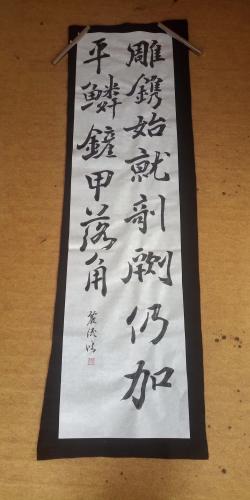 雕鐫始就剞劂仍加
平鱗鏟甲落角